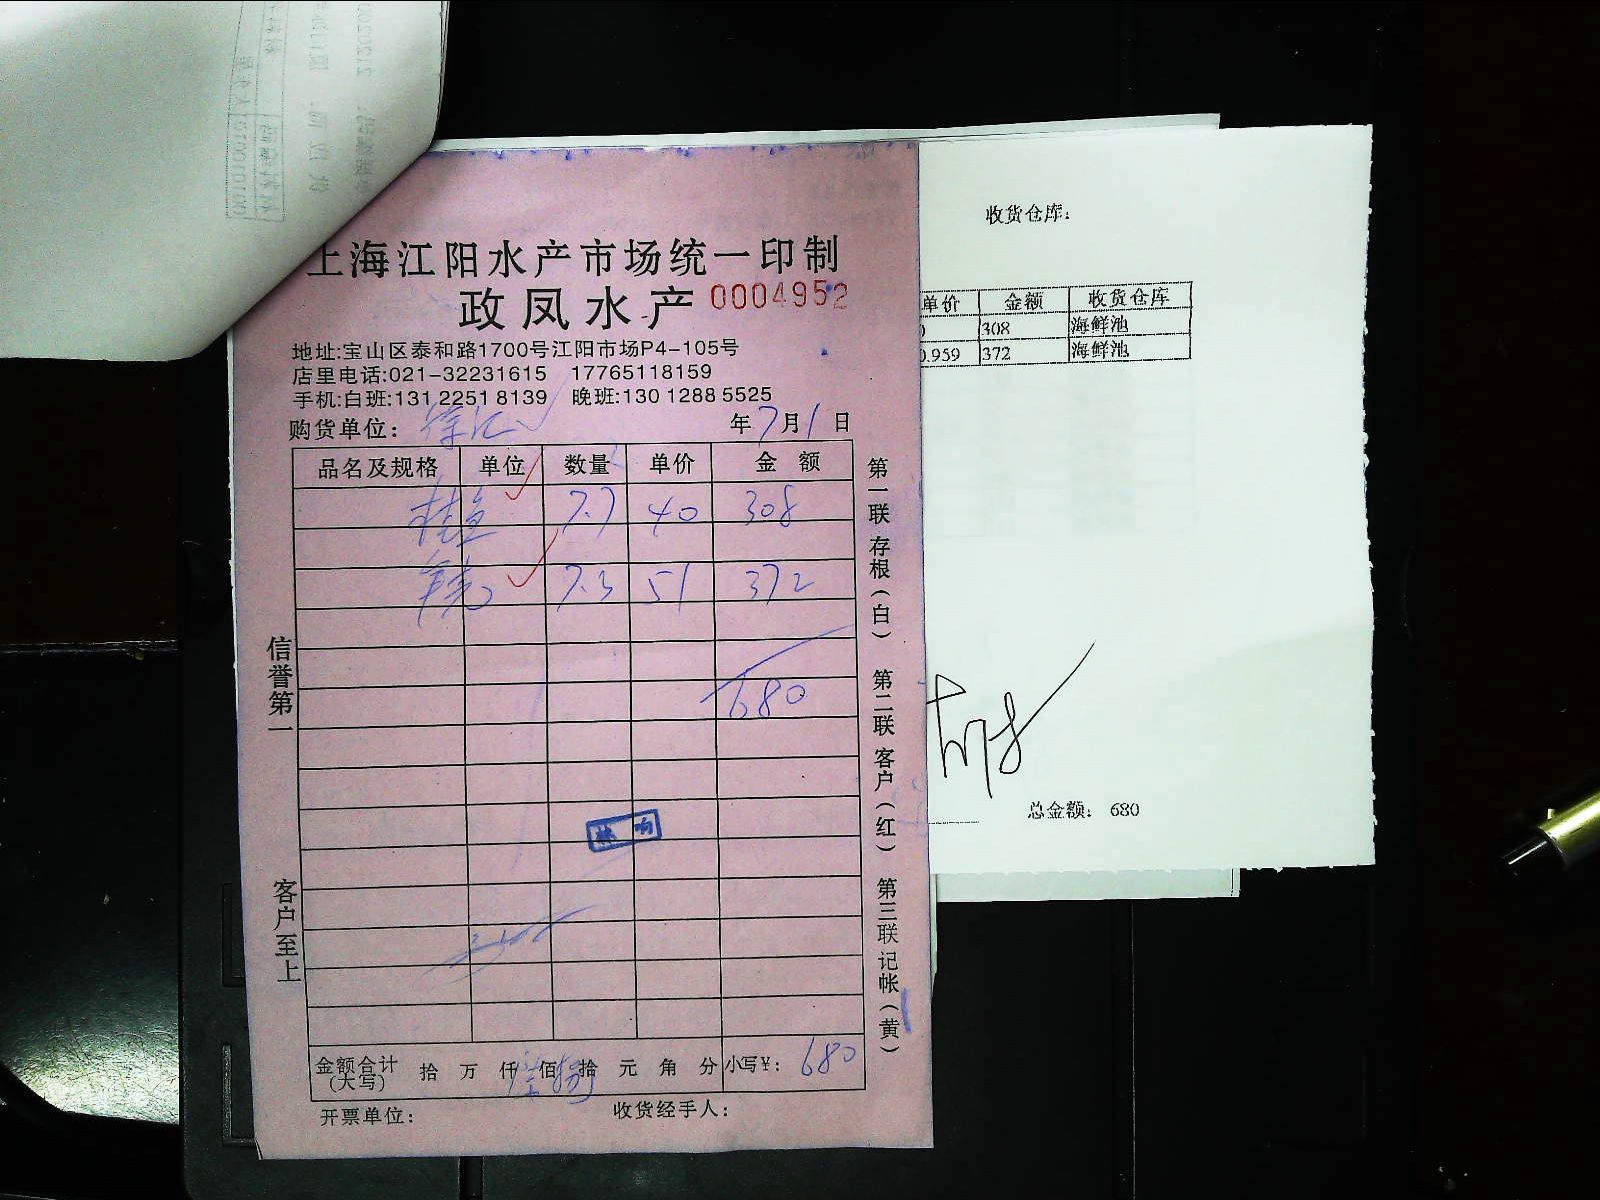 上海江阳水产市场统一印制
政凤水产 0004952
地址:宝山区泰和路1700号江阳市场P4-105号
店里电话:021-32231615 17765118159
手机:白班:131 2251 8139 晚班:130 1288 5525
购货单位: 徐汇 年7月1日
品名及规格 单位 数量 单价 金 额
桂鱼 7.7 40 308
7.3 51 372
680
金额合计(大写) 拾 万 仟 佰 拾 元 角 分 小写¥: 680
开票单位: 收货经手人:
信誉第一
客户至上
第一联 存根(白) 第二联 客户(红) 第三联 记帐(黄)
收货仓库:
单价 金额 收货仓库
308 海鲜池
0.959 372 海鲜池
总金额: 680